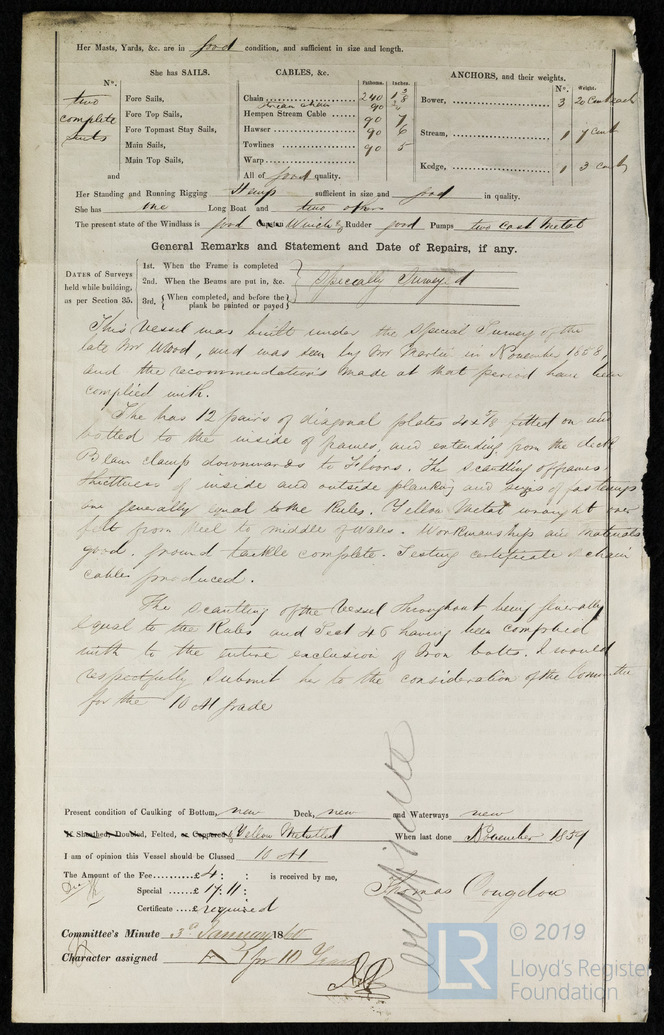 Her Masts, Yards, &c. are in good condition, and sufficient in size and length.
She has SAILS.
CABLES, &c.
ANCHORS, and their weights.
N°.
Fathoms. Inches.
N°. Weight.
two complete suits
Fore Sails,
Fore Top Sails,
Fore Topmast Stay Sails,
Main Sails,
Main Top Sails,
and
Chain 240 1 3/8
Stream Chain 90
Hempen Stream Cable 90 7
Hawser 90 6
Towlines 90 5
Warp
All of good quality.
Bower, 3 20 Cwt each
Stream, 1 7 Cwt
Kedge, 1 3 Cwt
Her Standing and Running Rigging Hemp sufficient in size and good in quality.
She has one Long Boat and two others
The present state of the Windlass is good Capstan Winch & Rudder good Pumps two Cast Metal
General Remarks and Statement and Date of Repairs, if any.
DATES of Surveys held while building, as per Section 35.
1st. When the Frame is completed
2nd. When the Beams are put in, &c.
3rd. When completed, and before the plank be painted or payed
Specially Surveyed
This Vessel was built under the Special Survey of the
late Mr Wood, and was seen by Mr Martin in November 1858,
and the recommendations made at that period have been
complied with.
She has 12 pairs of diagonal plates 4 x 7/8 fitted on and
bolted to the inside of frames, and extending from the deck
Beam clamp downwards to Floors. The scantling of frames
thickness of inside and outside planking and sizes of fastenings
are generally equal to the Rules. Yellow Metal wrought over
felt from Keel to middle of Wales. Workmanship and materials
good. ground tackle complete. Testing certificate of chain
cables produced.
The scantling of the Vessel throughout being generally
equal to the Rules and Sect 46 having been complied
with to the entire exclusion of Iron bolts. I would
respectfully submit her to the consideration of the Committee
for the 10 A1 grade
Certificate
Present condition of Caulking of Bottom, new Deck, new and Waterways new
If Sheathed, Doubled, Felted, or Coppered & Yellow Metalled When last done November 1859
I am of opinion this Vessel should be Classed 10 A1
The Amount of the Fee £ 4 : : is received by me,
Special £ 17 : 11 :
Certificate £ required
Thomas Congdon
Committee's Minute 3d January 1860
Character assigned A 1 for 10 Years
LR
© 2019
Lloyd's Register
Foundation